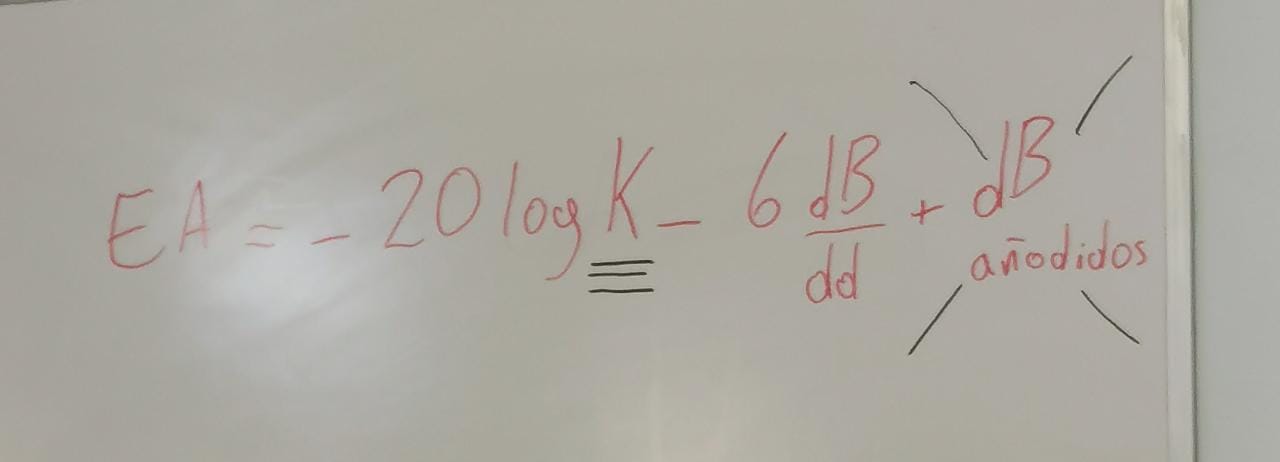 EA = - 20 log K - 6 dB/dd + dB
añadidos